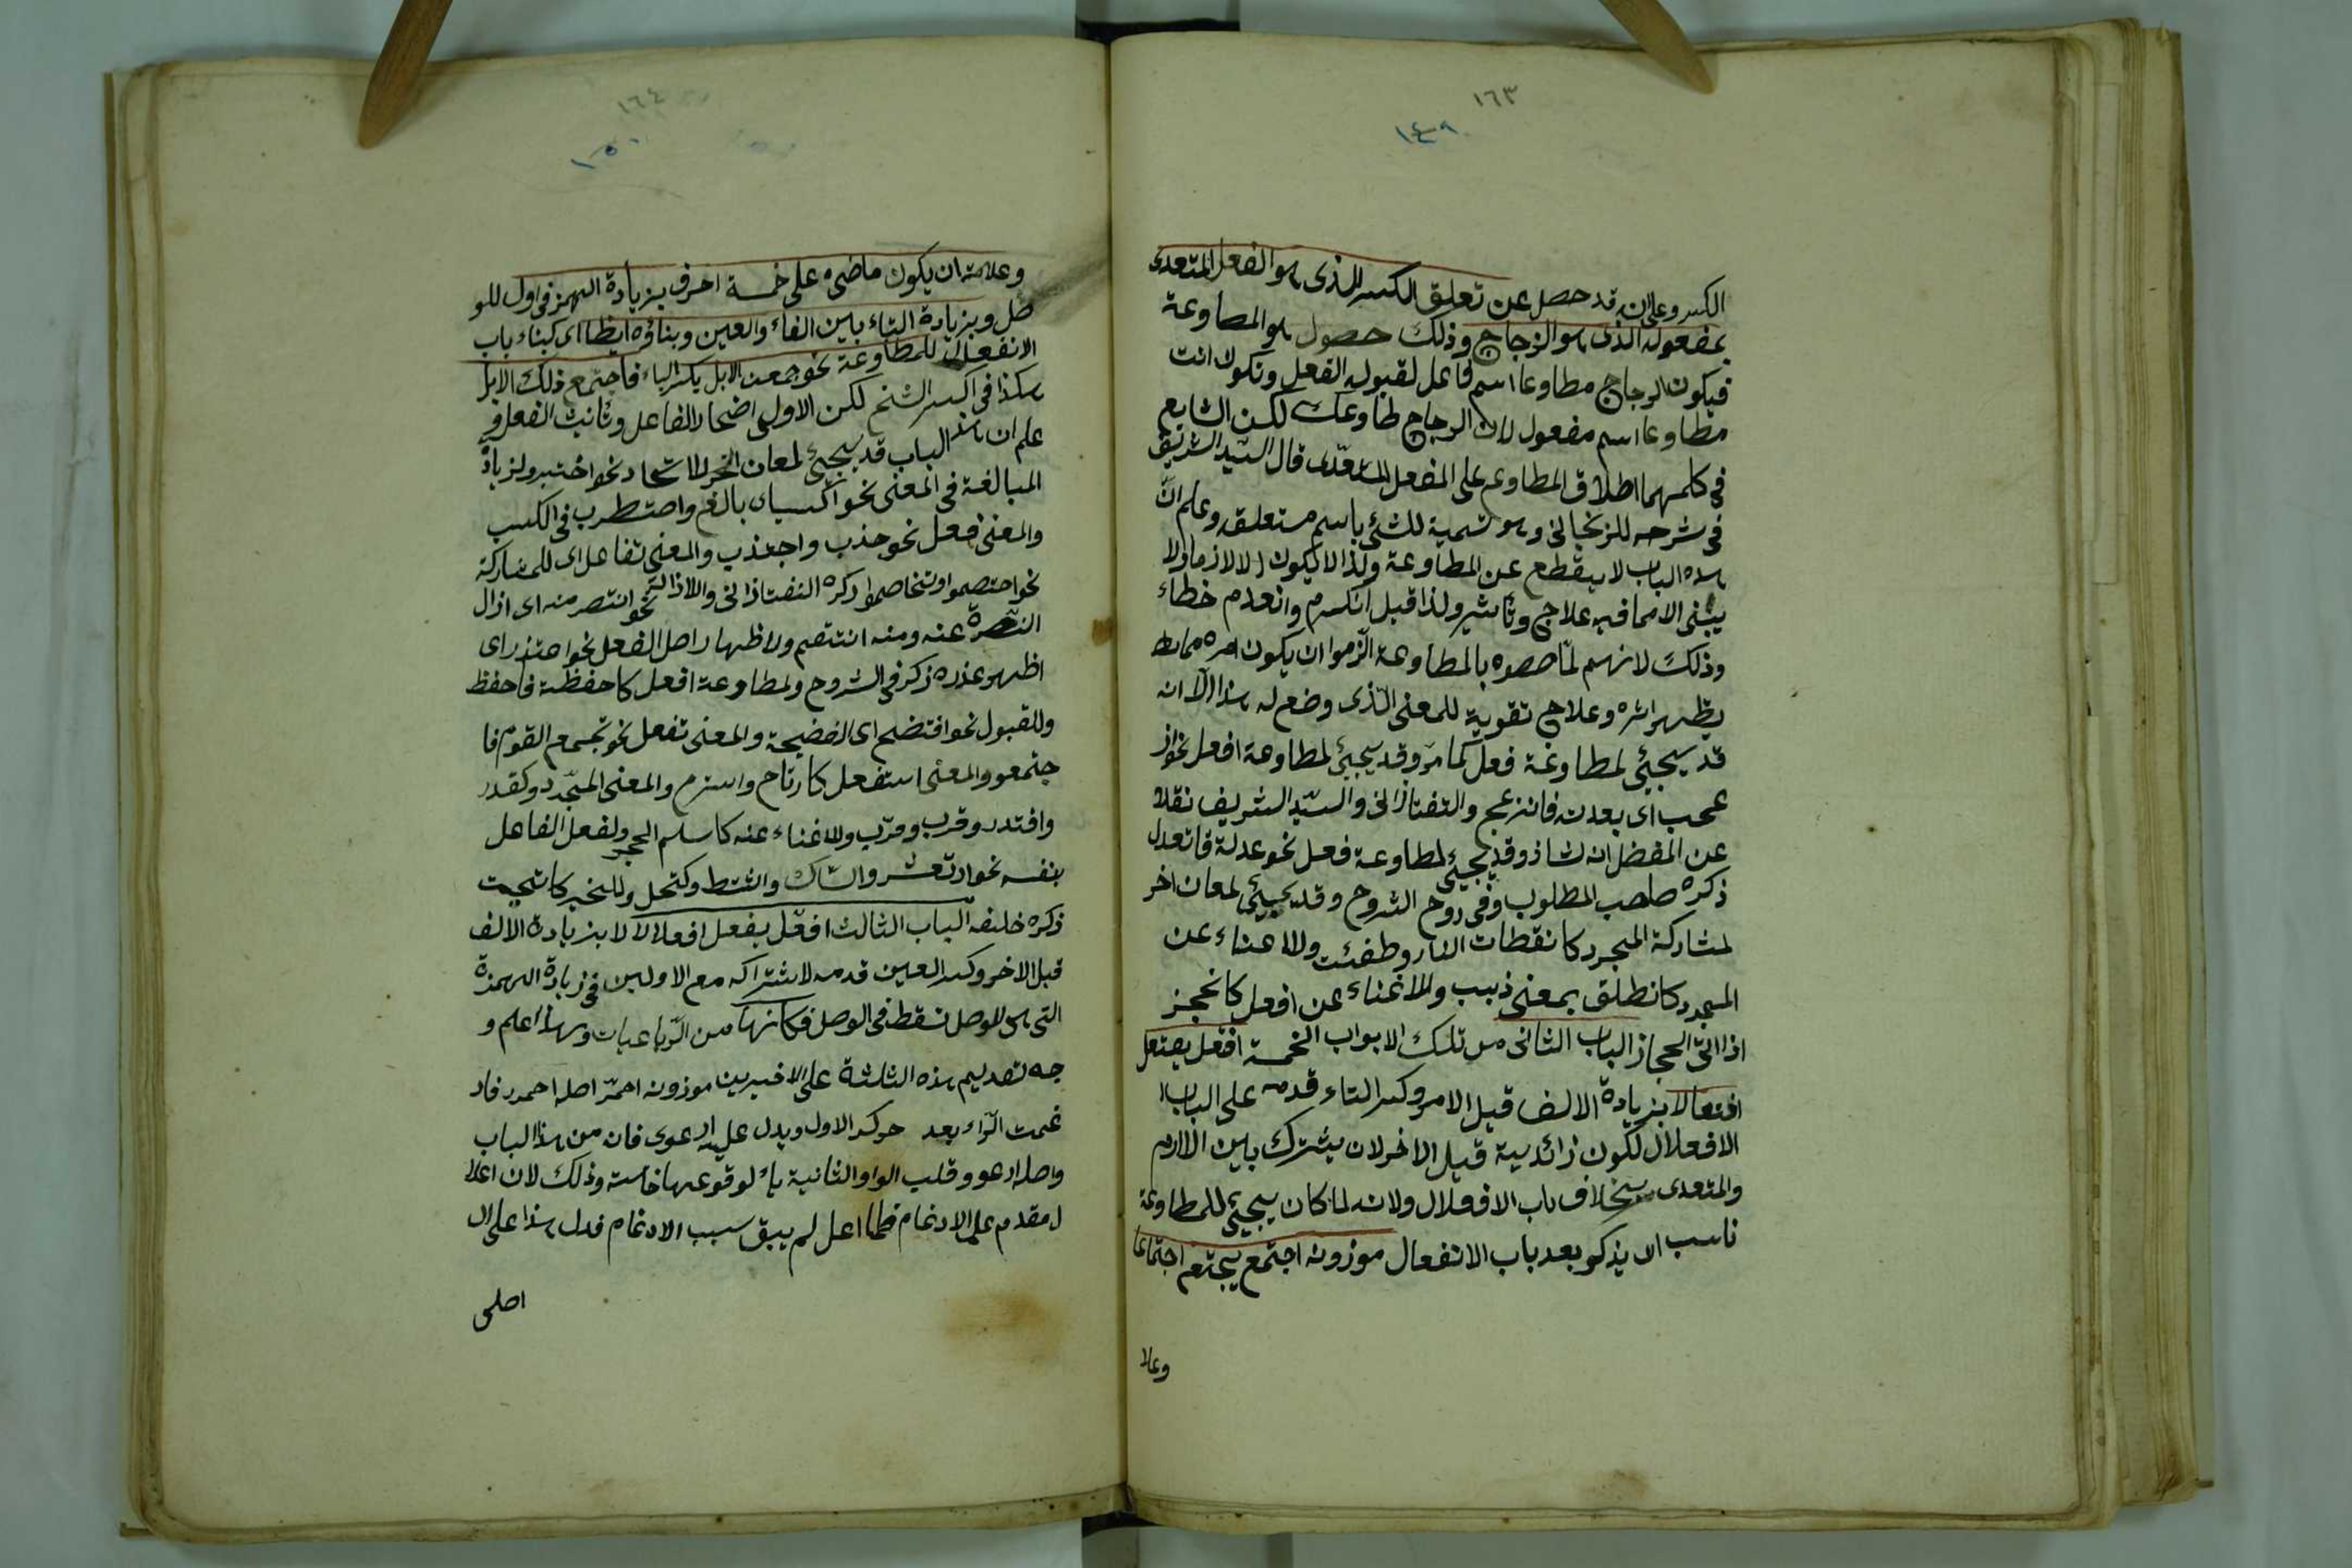 ١٦٣
١٤٩
الكسر وعلى انه قد حصل عن تعلق الكسر الذى هو الفعل المتعدى
بمفعوله الذى هو الزجاج وذلك حصول هو المطاوعة
فيكون الزجاج مطاوعا اسم فاعل لقبوله الفعل وتكون انت
مطاوعا اسم مفعول لان الزجاج طاوعك لكن الشايع
فى كلامهما اطلاق المطاوع على الفعل المتعدى قال السيد الشريف
فى شرحه للزنجانى وهو تسمية للشئ باسم متعلقه وعلم انّ
هذه الباب لا ينقطع عن المطاوعة ولذا لا يكون الا لازما ولا
يبنى الا مما فيه علاج وتأثير ولذا قيل انكرم وانعدم خطاء
وذلك لانهم لمّا خصوه بالمطاوعة الزموا ان يكون امره مما
يظهر اثره وعلاج تقوية للمعنى الّذى وضع له هذا الّا انه
قد يجيئ لمطاوعة فعل كما مرّ وقد يجيئ لمطاوعة افعل نحو از
عجب اى بعدت فانزعج والتفتازانى والسيّد الشريف نقلا
عن المفضل انه شاذ وقد يجيئ لمطاوعة فعل نحو عدلة فانعدل
ذكره صاحب المطلوب وفى روح الشروح وقد يجيئ لمعان اخر
لمشاركة المجرد كانقطات النار وطفئت وللا غناء عن
المجرد كانطلق بمعنى ذهب وللاغناء عن افعل كانحجز
اذا اتى الحجاز الباب الثانى من تلك الابواب الخمسة افتعل يفتعل
افتعالا بزيادة الالف قبل الامر وكسر التاء قدمه على الباب ا
الافعلال لكون زائديه قبل الاخر لان يشترك بين اللازم
والمتعدى بخلاف باب الافعلال ولانه لما كان يجيئ للمطاوعة
ناسب ان يذكر بعد باب الانفعال موزونه اجتمع يجتمع اجتماعا
وعلا
١٦٤
١٥٠
وعلامته ان يكون ماضيه على خمسة احرف بزيادة الهمز فى اول للو
صل وبزيادة التاء بين الفاء والعين وبناؤه ايظا اى كبناء باب
الانفعال للمطاوعة نحو جمعت الابل يكثر الباء فاجتمع ذلك الابل
هكذا فى اكسر النسخ لكن الاولى اضحار الفاعل وتأنيث الفعل و
علم ان هذ الباب قد يجيئ لمعان اخر للاتخاد نحو اختبر ولزيادة
المبالغة فى المعنى نحو اكسيان بالغ واصتطرب فى الكسب
والمعنى فعل نحو جذب واجتذب والمعنى تفاعل اى للمشاركة
نحو اختصموا وتخاصموا ذكره التفتازانى وللازالة نحو انتصر منه اى ازال
النصرة عنه ومنه انتقم ولاظهار اصل الفعل نحو اعتذر اى
اظهر عذره ذكر فى الشروح ولمطاوعة افعل كاحفظة فاحفظ
وللقبول نحو افتضح اى الفضيحة والمعنى تفعل نحو تجمع القوم فا
جتمعو والمعنى استفعل كارتاح واستزم والمعنى المجّرد كقدر
واقتدر وقرب ومرّب وللاغناء عنه كاسلم الحجر ولفعل الفاعل
بنفسه نحو ارتعش واشتاك وانشط وكتحل وللخير كانتخبت
ذكره خليفه الباب الثالث افعّل يفعل افعلالا لا بزيادة الالف
قبل الاخر وكسر العين قدمه لاشتراكه مع الاولين فى زيادة الهمزة
التى هى للوصل نسقط فى الوصل فكانها من الرّباعيات وبهذا اعلم و
جه تقديم هذه الثلثة على الاخيرين موزونه احمرّ اصله احمرر فاد
غمت الرّاء بعد حركة الاول ويدل عليه ارعوى فان من هذا الباب
واصله ارعوو وقلب الواو الثانية ياء لوقوعها خامسة وذلك لان اعلا
ل مقدم على الادغام فلما اعل لم يبق سبب الادغام فدل هذا على ان
اصلى